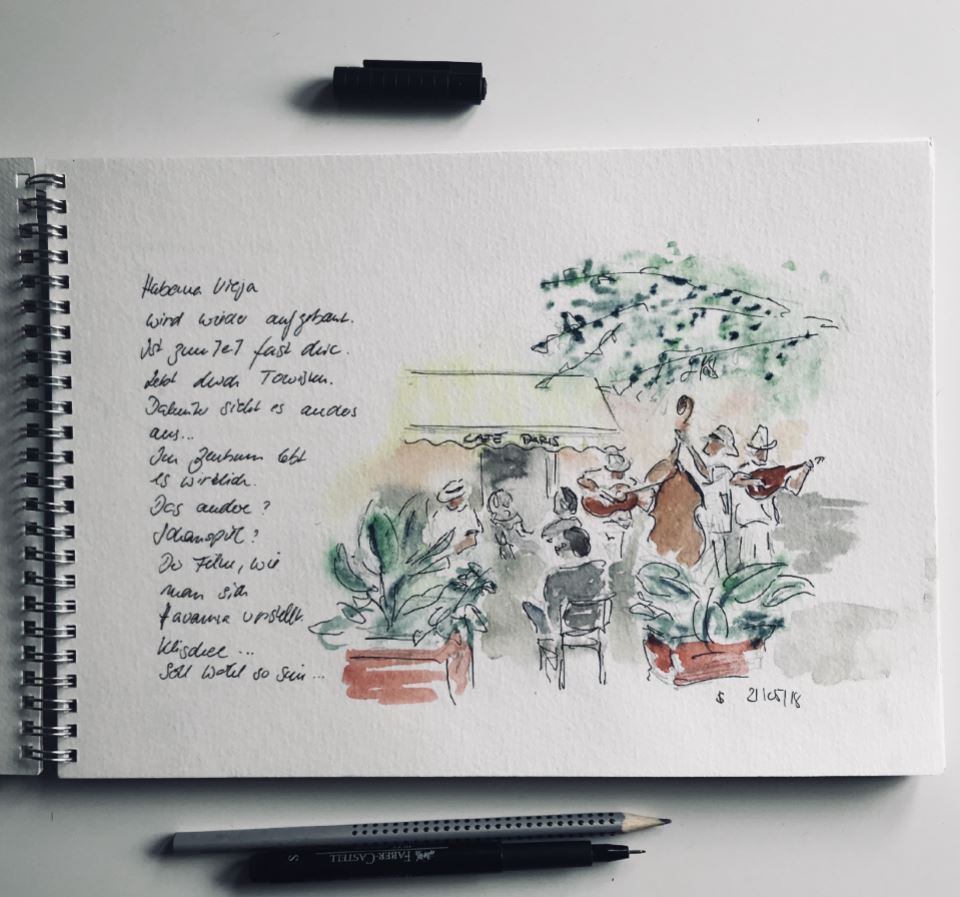 Habana Vieja
wird wieder aufgebaut.
ist zum Teil fast
Lebt durch Touristen.
Dahinter sieht es anders
aus...
Im Zentrum lebt
es wirklich.
Das andere?
Schauspiel?
Der Film, wie
man sich
Havanna vorstellt.
Klischee...
Soll wohl so sein...
CAFÉ PARIS
21/05/18
FABER-CASTELL
S